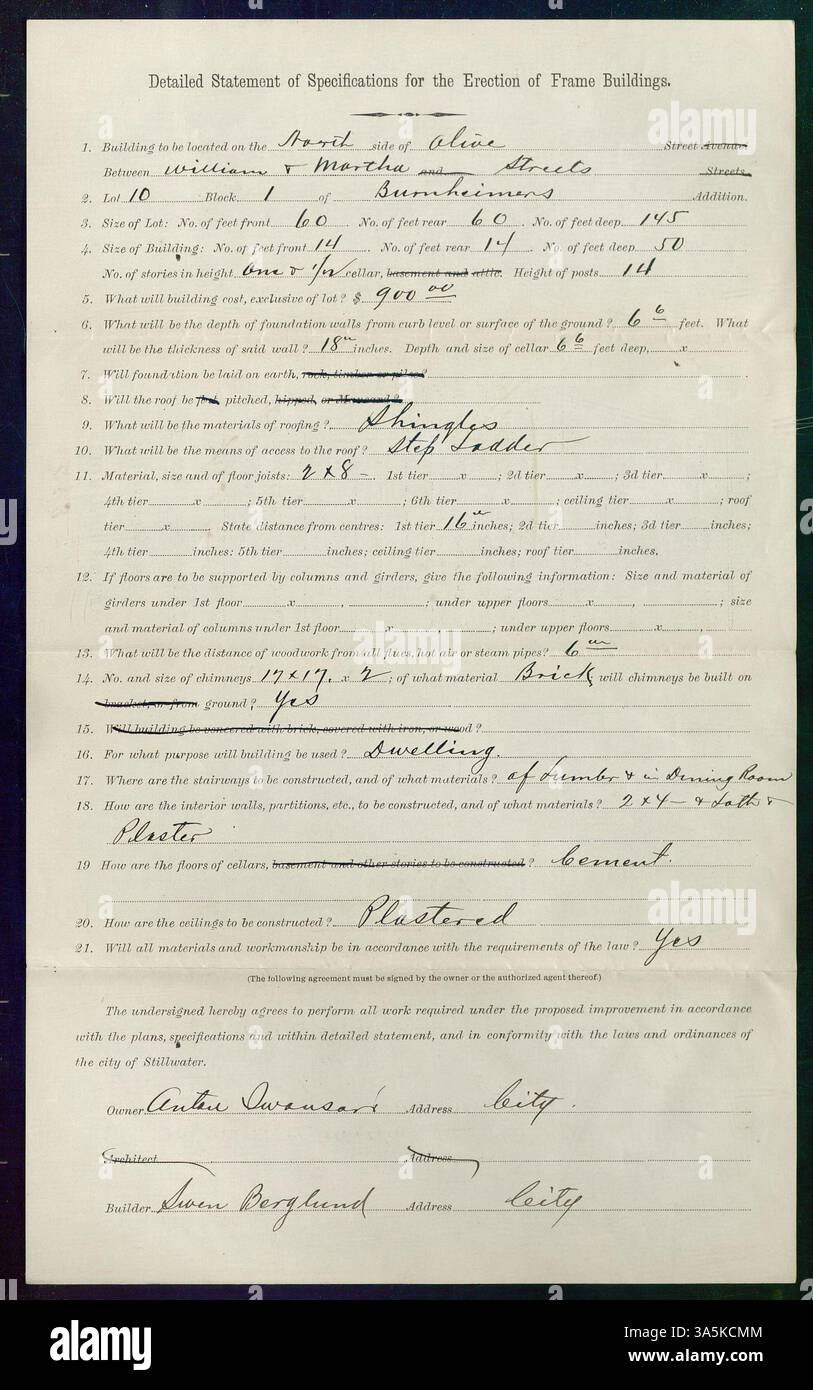 Detailed Statement of Specifications for the Erection of Frame Buildings.
1. Building to be located on the North side of Olive Street Avenue
Between William & Martha and Streets Streets
2. Lot 10 Block 1 of Burnheimers Addition.
3. Size of Lot: No. of feet front 60 No. of feet rear 60. No. of feet deep 145
4. Size of Building: No. of feet front 14 No. of feet rear 14 No. of feet deep 50
No. of stories in height One & 1/2 cellar, basement and attic. Height of posts 14
5. What will building cost, exclusive of lot? $ 900 00
6. What will be the depth of foundation walls from curb level or surface of the ground? 6 6 feet. What
will be the thickness of said wall? 18" inches. Depth and size of cellar 6 6 feet deep, x
7. Will foundation be laid on earth, rock, timber or piles?
8. Will the roof be flat, pitched, hipped, or Mansard?
9. What will be the materials of roofing? Shingles
10. What will be the means of access to the roof? Step Ladder
11. Material, size and of floor joists: 2 x 8 - 1st tier x ; 2d tier x ; 3d tier x ;
4th tier x ; 5th tier x ; 6th tier x ; ceiling tier x ; roof
tier x . State distance from centres: 1st tier 16" inches; 2d tier inches; 3d tier inches;
4th tier inches: 5th tier inches; ceiling tier inches; roof tier inches.
12. If floors are to be supported by columns and girders, give the following information: Size and material of
girders under 1st floor x , ; under upper floors x , ; size
and material of columns under 1st floor x , ; under upper floors x ,
13. What will be the distance of woodwork from all flues, hot air or steam pipes? 6
14. No. and size of chimneys 17x17. x 2; of what material Brick, will chimneys be built on
brackets or from ground? Yes
15. Will building be veneered with brick, covered with iron, or wood?
16. For what purpose will building be used? Dwelling.
17. Where are the stairways to be constructed, and of what materials? of Lumber & in Dining Room
18. How are the interior walls, partitions, etc., to be constructed, and of what materials? 2 x 4 - & Lath &
Plaster
19 How are the floors of cellars, basement and other stories to be constructed? Cement.
20. How are the ceilings to be constructed? Plastered
21. Will all materials and workmanship be in accordance with the requirements of the law? Yes
(The following agreement must be signed by the owner or the authorized agent thereof.)
The undersigned hereby agrees to perform all work required under the proposed improvement in accordance
with the plans, specifications and within detailed statement, and in conformity with the laws and ordinances of
the city of Stillwater.
Owner Anton Swanson Address City.
Architect Address
Builder Swen Berglund Address City
alamy
Image ID: 3A5KCMM
www.alamy.com